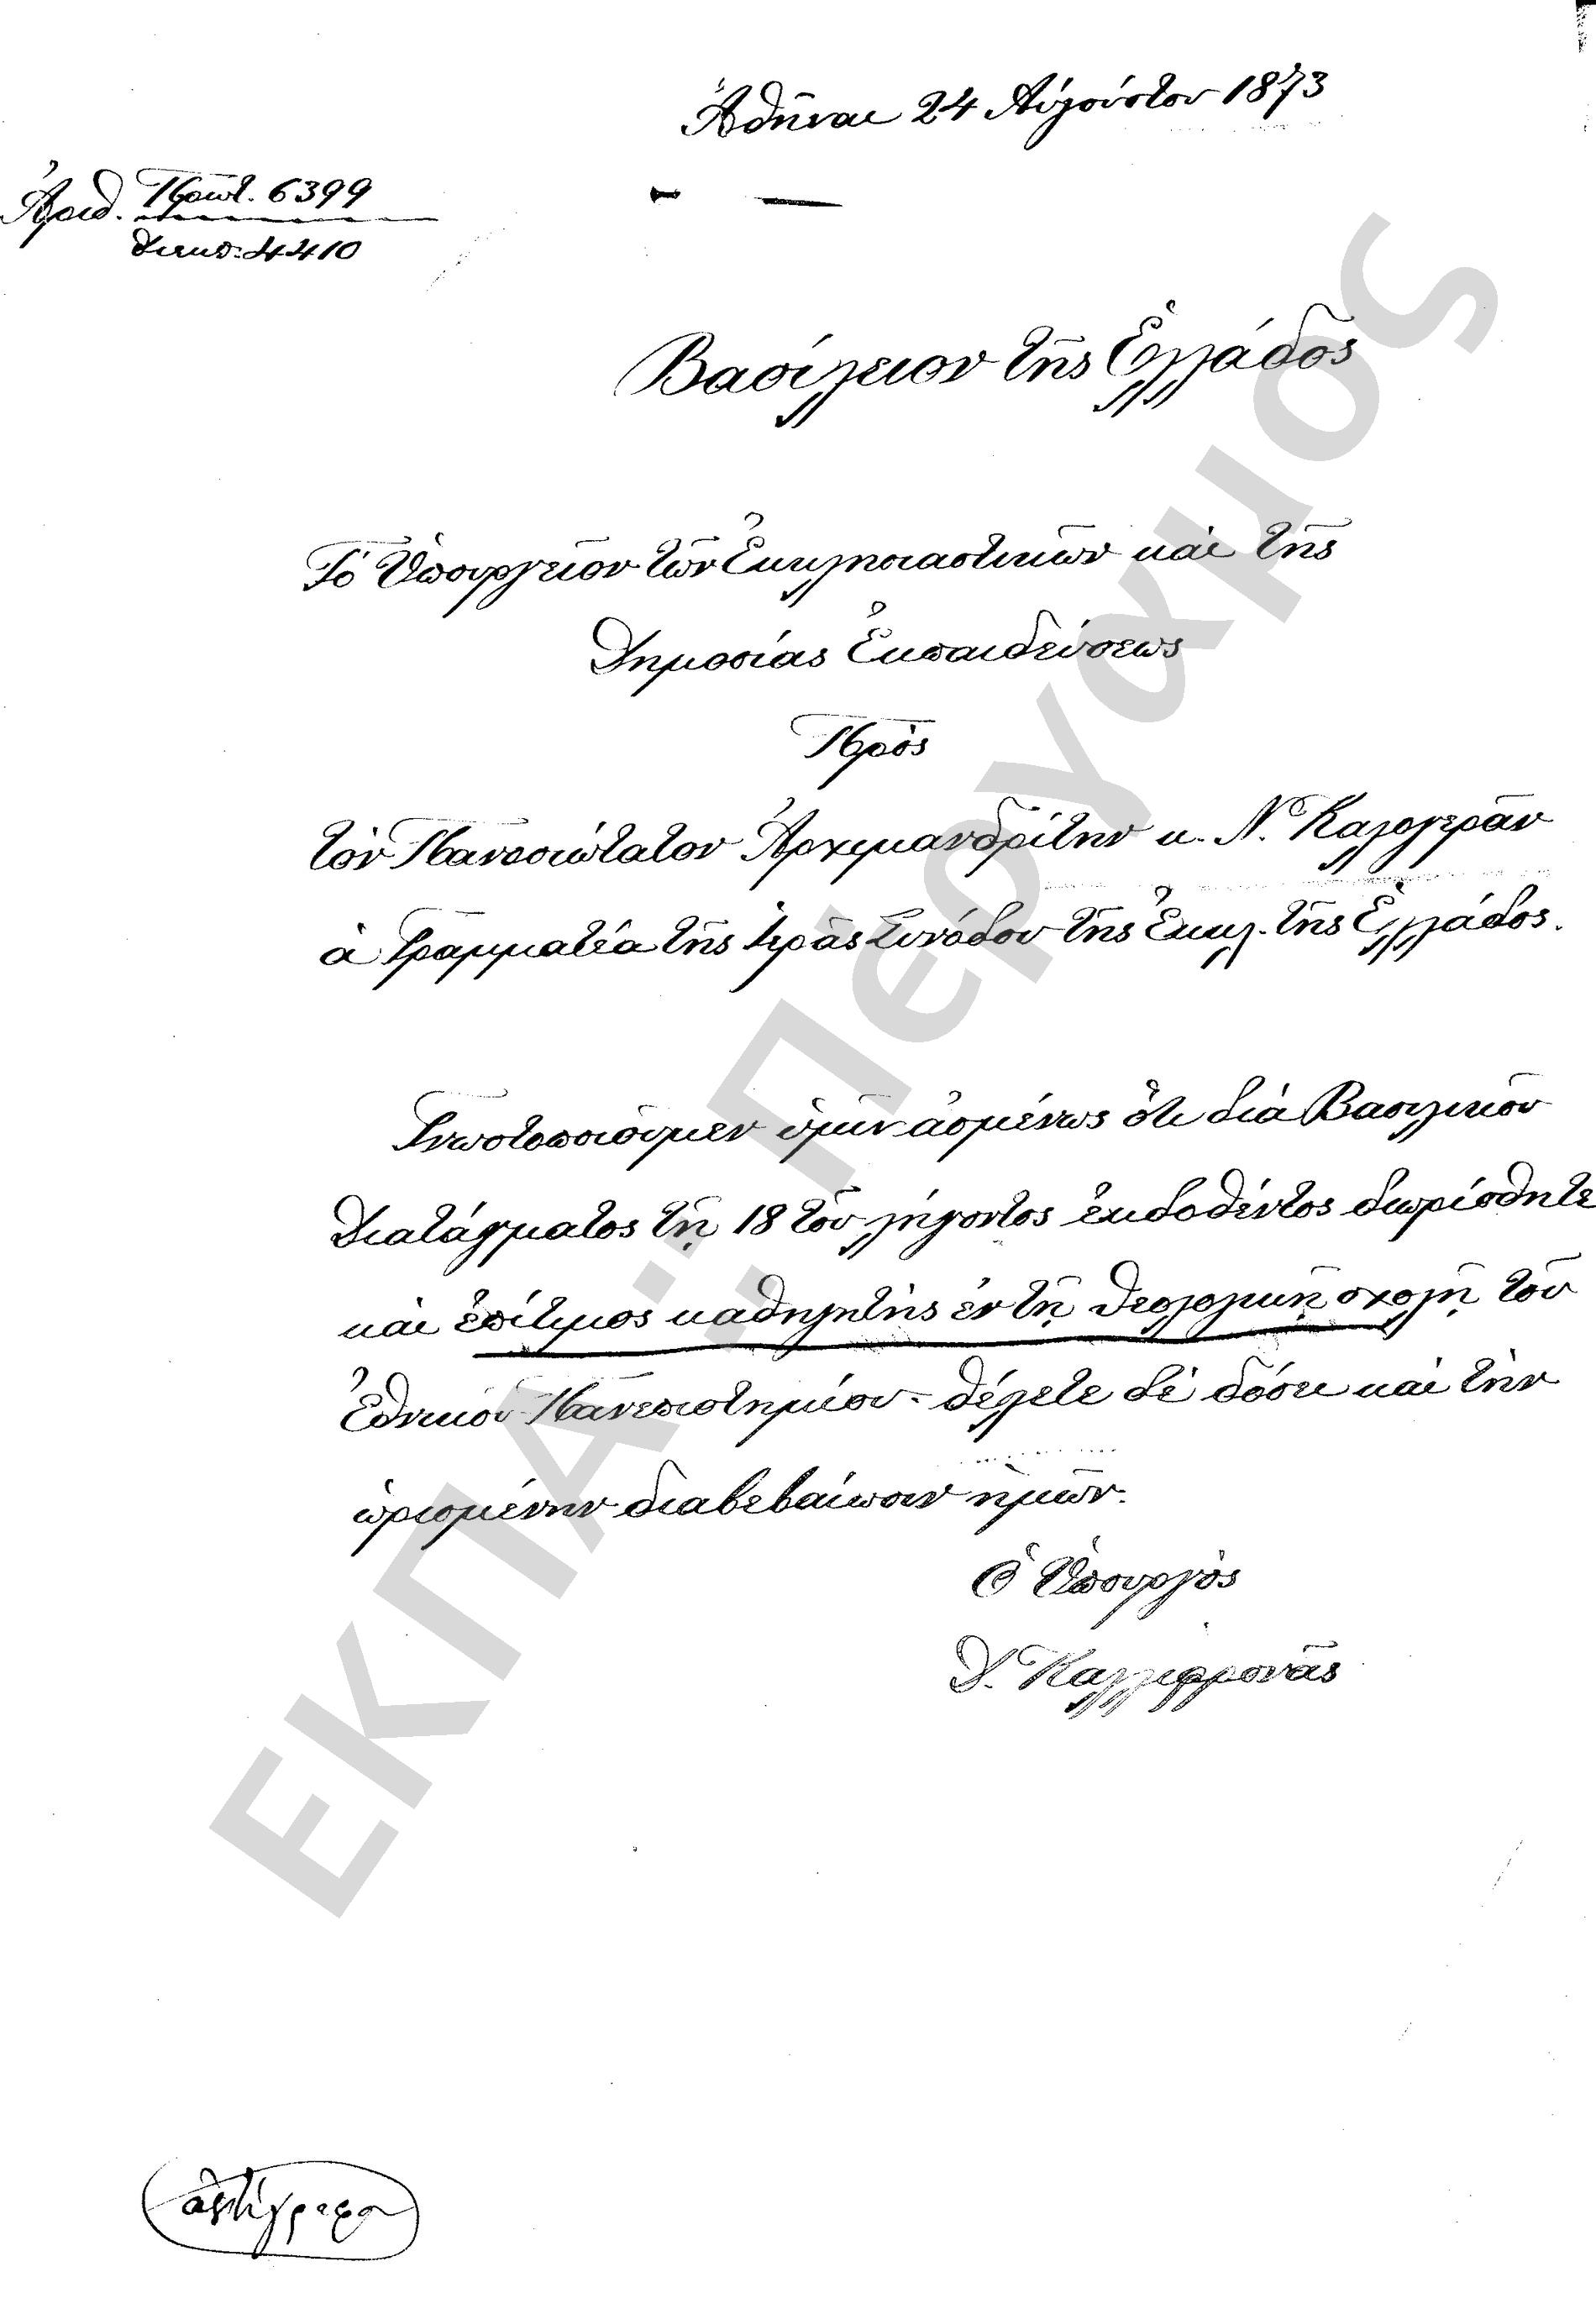 Ἀθῆναι 24 Αὐγούστου 1873
Ἀριθ. Πρωτ. 6399
Διεκπ. 4410
Βασίλειον τῆς Ἑλλάδος
Τὸ Ὑπουργεῖον τῶν Ἐκκλησιαστικῶν καὶ τῆς
Δημοσίας Ἐκπαιδεύσεως
Πρὸς
τὸν Πανοσιώτατον Ἀρχιμανδρίτην κ. Ν. Καλογερᾶν
ά Γραμματέα τῆς Ἱερᾶς Συνόδου τῆς Ἐκκλ. τῆς Ἑλλάδος.
Γνωστοποιοῦμεν ὑμῖν ἀσμένως ὅτι διὰ Βασιλικοῦ
Διατάγματος τῇ 18 τοῦ λήγοντος ἐκδοθέντος διωρίσθητε
καὶ ἐπίτιμος καθηγητὴς ἐν τῇ Θεολογικῇ σχολῇ τοῦ
Ἐθνικοῦ Πανεπιστημίου. θέλετε δὲ δόσει καὶ τὴν
ὡρισμένην διαβεβαίωσιν ἡμῶν.
Ὁ Ὑπουργὸς
Δ. Καλλιφρονᾶς
ἀντίγραφον
ΕΚΠΑ :: Πέργαμος